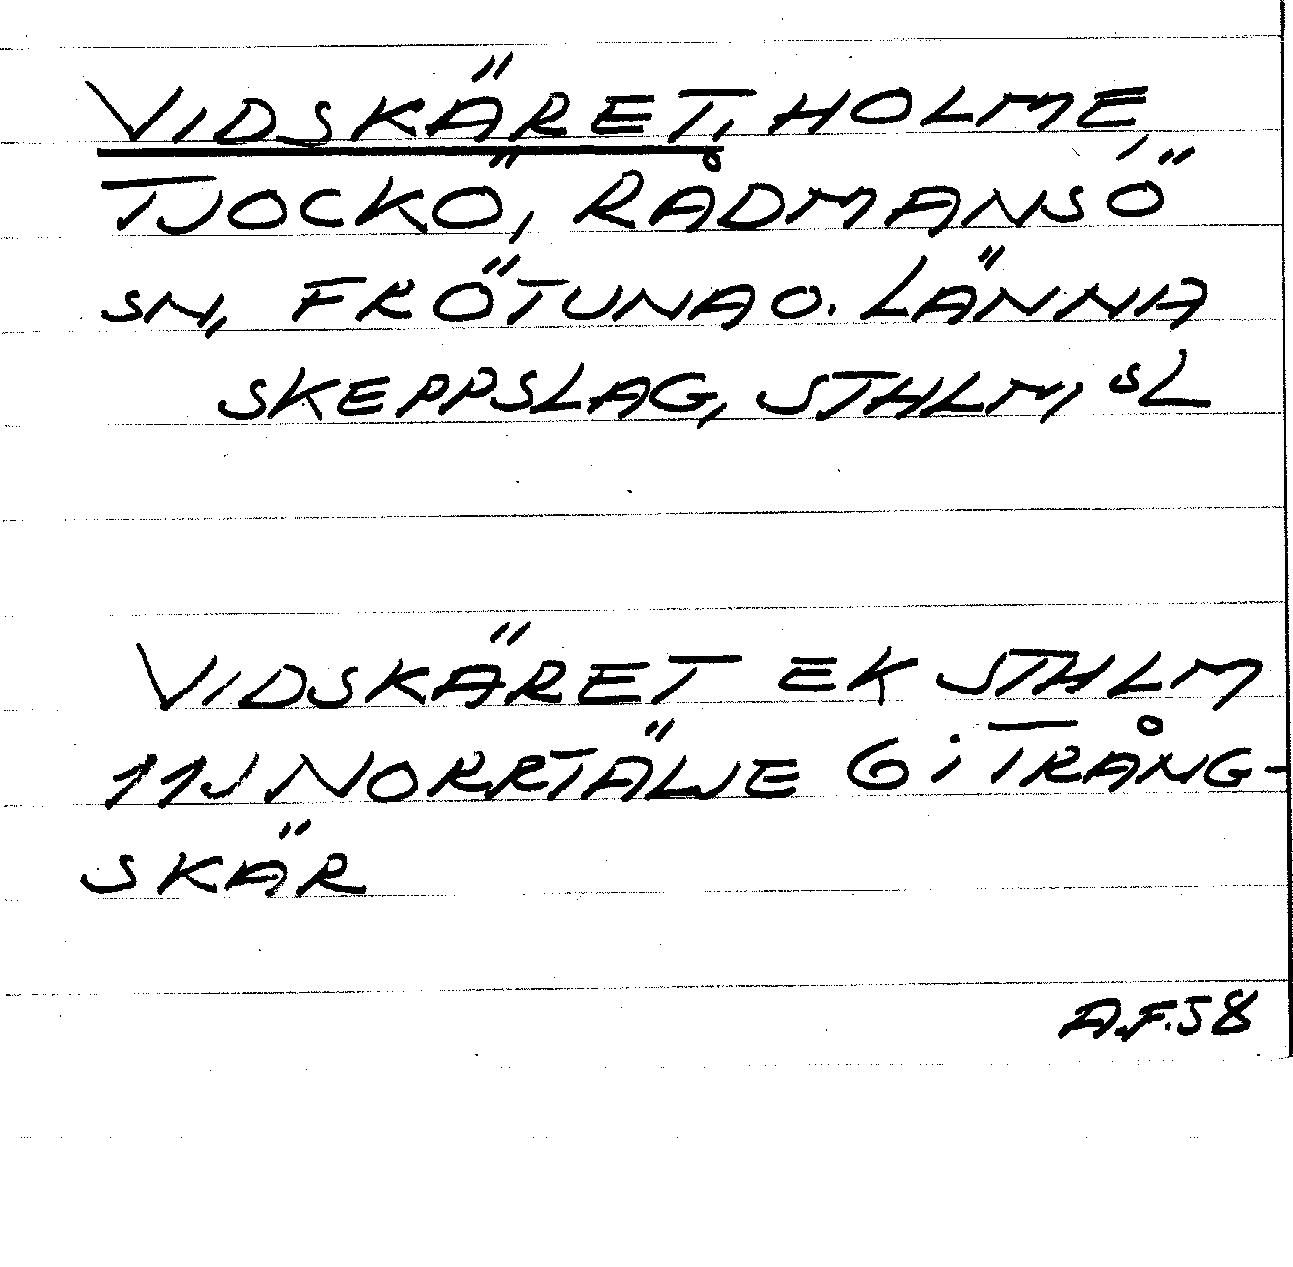 VIDSKÄRET, HOLME,
TJOCKÖ, RÅDMANSÖ
SN, FRÖTUNA O. LÄNNA
SKEPPSLAG, STHLM, SL
VIDSKÄRET EK STHLM
11J NORRTÄLJE 6 i TRÅNG-
SKÄR
A.F.58